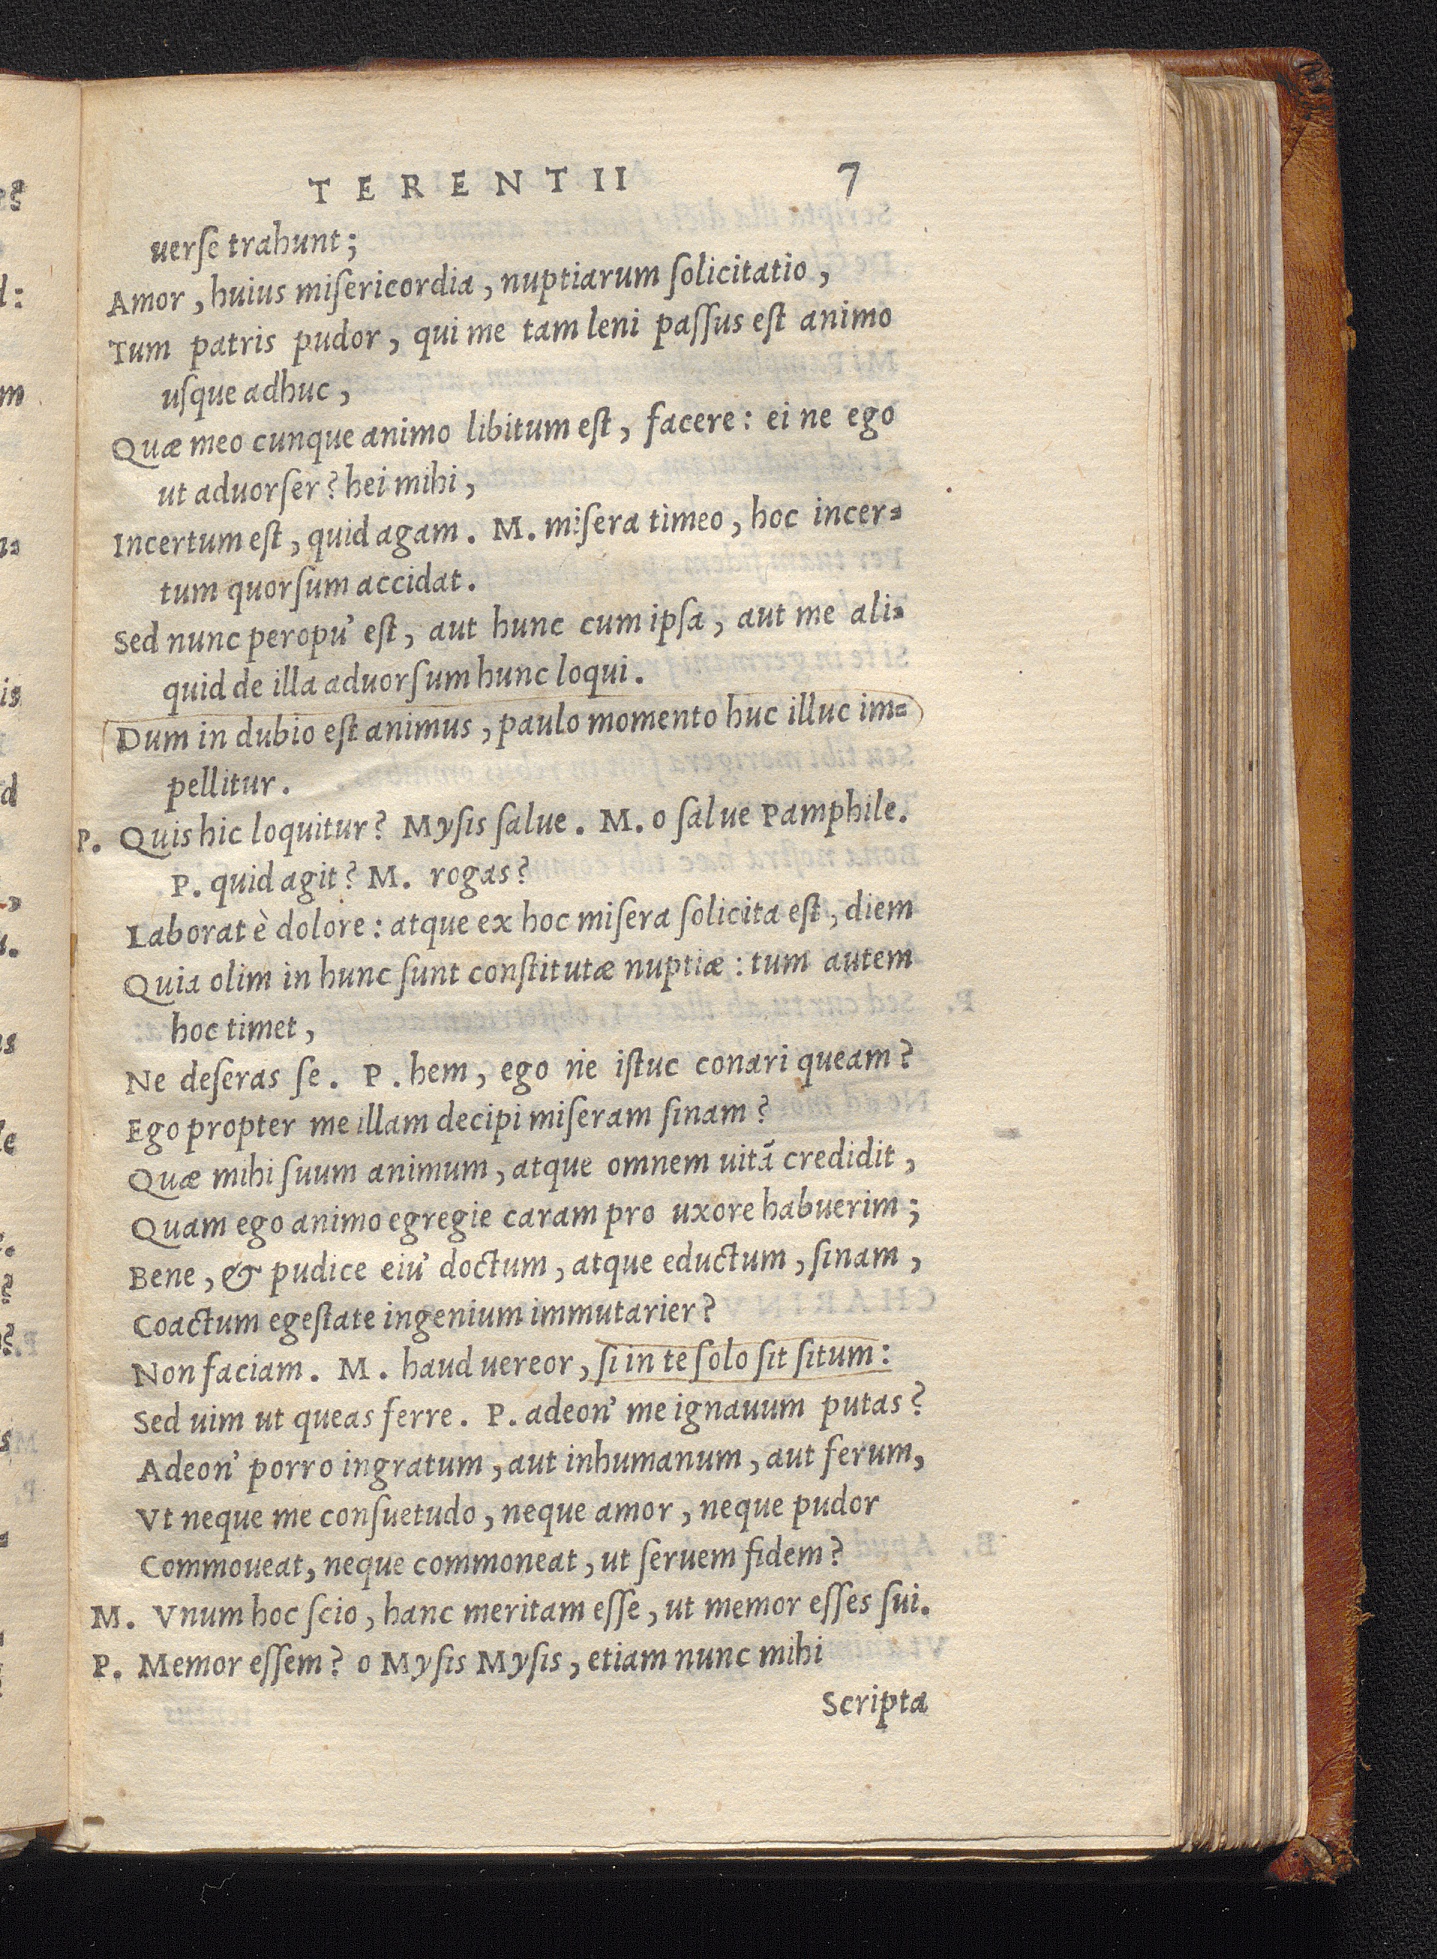 TERENTII 7
uerſe trahunt;
Amor, huius miſericordia, nuptiarum ſolicitatio,
Tum patris pudor, qui me tam leni paſſus eſt animo
uſque adhuc,
Quæ meo cunque animo libitum eſt, facere: ei ne ego
ut aduorſer? hei mihi,
Incertum eſt, quid agam. M. miſera timeo, hoc incer=
tum quorſum accidat.
Sed nunc peropu' eſt, aut hunc cum ipſa, aut me ali=
quid de illa aduorſum hunc loqui.
Dum in dubio eſt animus, paulo momento huc illuc im=
pellitur.
P. Quis hic loquitur? Myſis ſalue. M. o ſalue Pamphile.
P. quid agit? M. rogas?
Laborat è dolore: atque ex hoc miſera ſolicita eſt, diem
Quia olim in hunc ſunt conſtitutæ nuptiæ: tum autem
hoc timet,
Ne deſeras ſe. P. hem, ego ne iſtuc conari queam?
Ego propter me illam decipi miſeram ſinam?
Quæ mihi ſuum animum, atque omnem uitā credidit,
Quam ego animo egregie caram pro uxore habuerim;
Bene, & pudice eiu' doctum, atque eductum, ſinam,
Coactum egeſtate ingenium immutarier?
Non faciam. M. haud uereor, ſi in te ſolo ſit ſitum:
Sed uim ut queas ferre. P. adeon' me ignauum putas?
Adeon' porro ingratum, aut inhumanum, aut ferum,
Vt neque me conſuetudo, neque amor, neque pudor
Commoueat, neque commoneat, ut ſeruem fidem?
M. Vnum hoc ſcio, hanc meritam eſſe, ut memor eſſes ſui.
P. Memor eſſem? o Myſis Myſis, etiam nunc mihi
Scripta